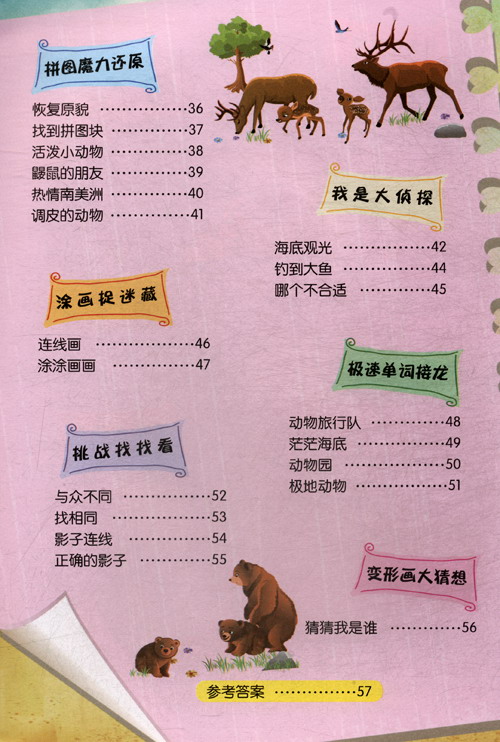 拼图魔力还原
恢复原貌 ·············· 36
找到拼图块 ············ 37
活泼小动物 ············ 38
鼹鼠的朋友 ············ 39
热情南美洲 ············ 40
调皮的动物 ············ 41
我是大侦探
海底观光 ·············· 42
钓到大鱼 ·············· 44
哪个不合适 ············ 45
涂画捉迷藏
连线画 ················ 46
涂涂画画 ·············· 47
极速单词接龙
动物旅行队 ············ 48
茫茫海底 ·············· 49
动物园 ················ 50
极地动物 ·············· 51
挑战找找看
与众不同 ·············· 52
找相同 ················ 53
影子连线 ·············· 54
正确的影子 ············ 55
变形画大猜想
猜猜我是谁 ············ 56
参考答案 ·············· 57